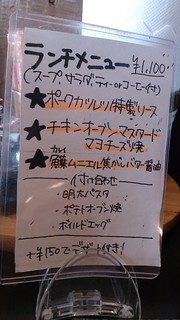 ランチメニュー ¥1,100
(スープ、サラダ、ティーorコーヒー付)
★ポークカツレツ特製ソース
★チキンオーブンマスタード
マヨチーズ焼
ムニエル焦がしバター醤油
付け合わせ
・明太パスタ
・ポテトオーブン焼
・ボイルドエッグ
+¥150でデザート付き!